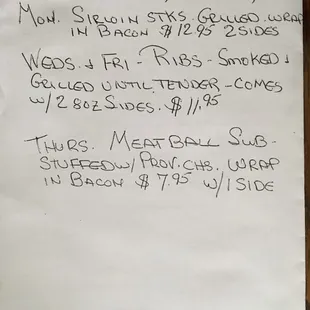 MON. SIRLOIN STKS. GRILLED. WRAP
IN BACON $12.95 2 SIDES
WEDS. & FRI - RIBS - SMOKED &
GRILLED UNTIL TENDER - COMES
W/ 2 8OZ SIDES. $11.95
THURS. MEATBALL SUB -
STUFFED W/ PROV. CHS. WRAP
IN BACON $7.95 W/ 1 SIDE